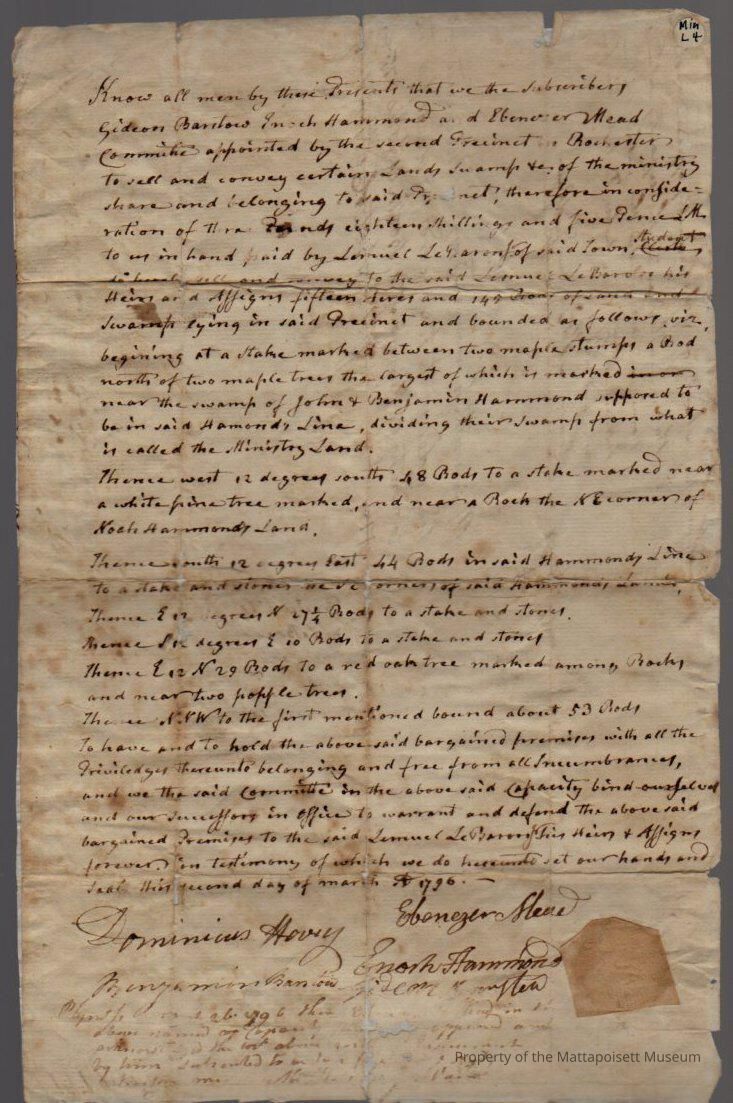 Min
L 4
Know all men by these Presents that we the Subscribers
Gideon Barstow Enoch Hammond and Ebenezer Mead
Committe appointed by the second Precinct in Rochester
to sell and convey certain Lands Swamp &c. of the ministry
share and belonging to said Precinct, therefore in conside=
ration of three Pounds eighteen shillings and five Pence LM
to us in hand paid by Lemuel LeBaron of said Town,
sell and convey to the said Lemuel LeBaron his
Heirs and Assigns fifteen Acres and 149 Rods of Land and
Swamp lying in said Precinct and bounded as follows, viz,
begining at a Stake marked between two maple stumps a Rod
north of two maple trees the largest of which is marked
near the swamp of John & Benjamin Hammond supposed to
be in said Hamonds Line, dividing their Swamp from what
is called the Ministry Land.
Thence west 12 degrees south 48 Rods to a stake marked near
a white pine tree marked, and near a Rock the N E corner of
Noah Hammonds Land,
Thence south 12 degrees East 44 Rods in said Hammonds Line
to a stake and stones corner of said Hammonds Land,
Thence E 12 degrees N 27 1/4 Rods to a stake and stones,
thence S 12 degrees E 10 Rods to a stake and stones
Thence E 12 N 29 Rods to a red oak tree marked among Rocks
and near two popple trees.
Thence N N W to the first mentioned bound about 53 Rods
To have and to hold the above said bargained premises with all the
Priviledges thereunto belonging and free from all Incumbrances,
and we the said Committe in the above said Capacity bind ourselves
and our Successors in office to warrant and defend the above said
bargained Premises to the said Lemuel LeBaron his Heirs & Assigns
forever. in testimony of which we do hereunto set our hands and
Seal this second day of march AD 1796. —
Ebenezer Mead
Dominicus Hovey
Enoch Hammond
Benjamin Barstow
Gideon Barstow
above named
Property of the Mattapoisett Museum